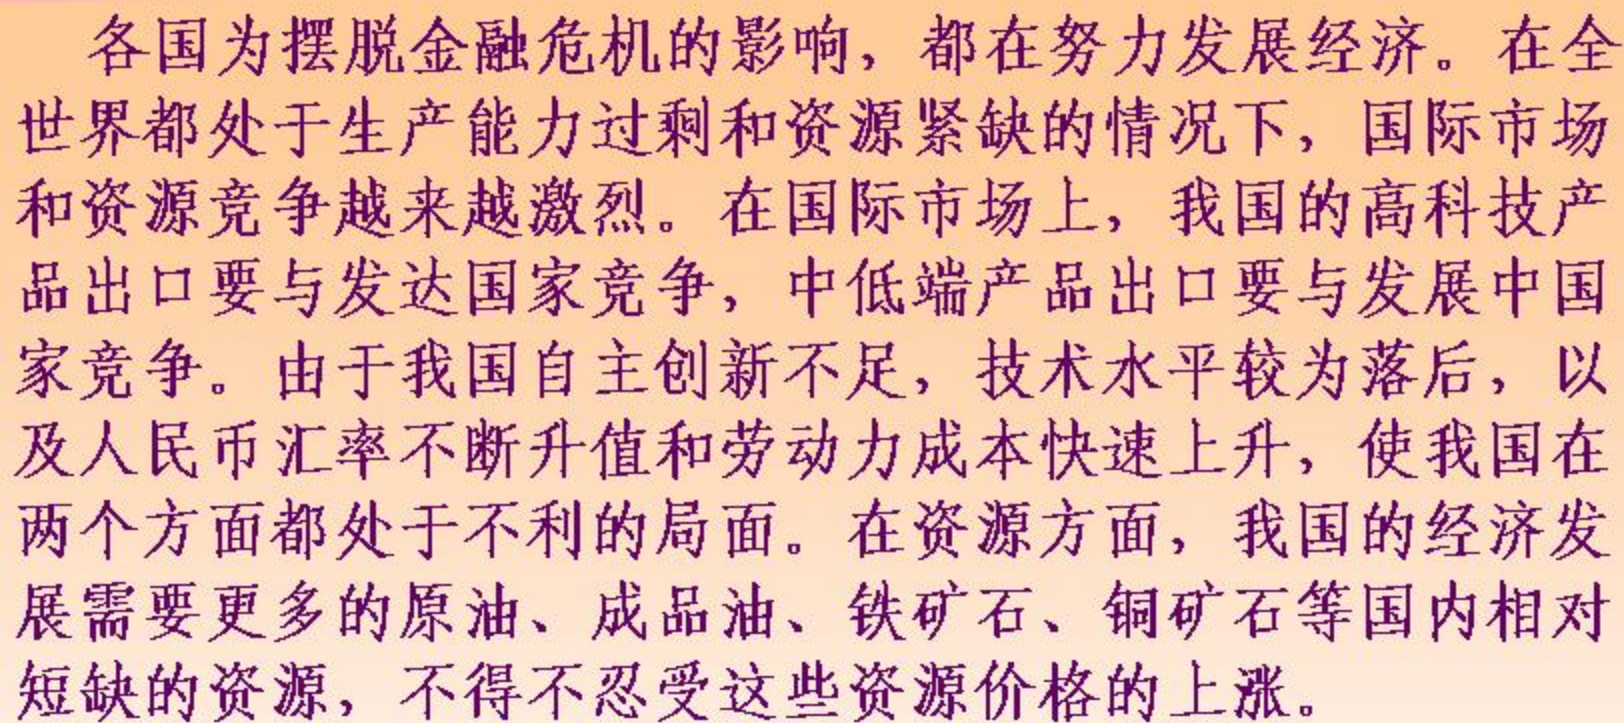 各国为摆脱金融危机的影响，都在努力发展经济。在全
世界都处于生产能力过剩和资源紧缺的情况下，国际市场
和资源竞争越来越激烈。在国际市场上，我国的高科技产
品出口要与发达国家竞争，中低端产品出口要与发展中国
家竞争。由于我国自主创新不足，技术水平较为落后，以
及人民币汇率不断升值和劳动力成本快速上升，使我国在
两个方面都处于不利的局面。在资源方面，我国的经济发
展需要更多的原油、成品油、铁矿石、铜矿石等国内相对
短缺的资源，不得不忍受这些资源价格的上涨。